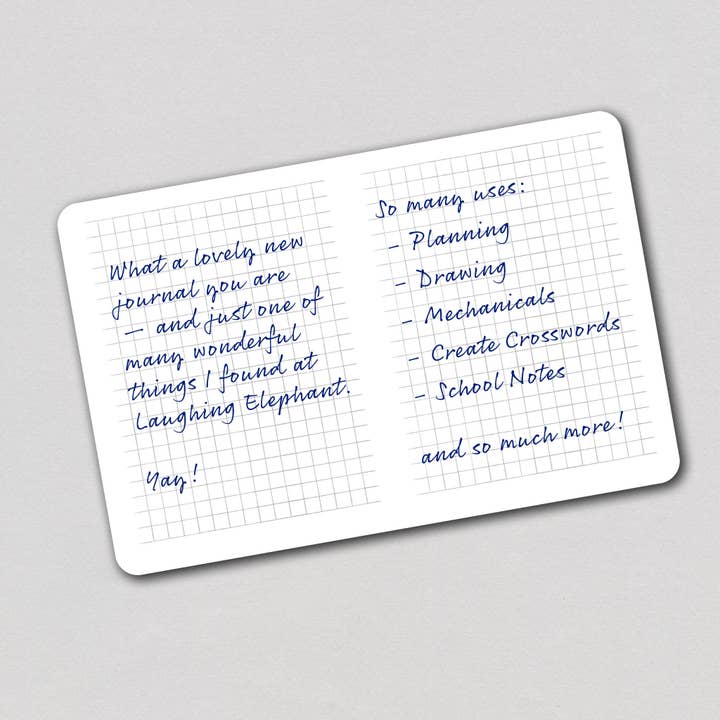 What a lovely new
journal you are
— and just one of
many wonderful
things I found at
Laughing Elephant.
Yay!
So many uses:
- Planning
- Drawing
- Mechanicals
- Create Crosswords
- School Notes
and so much more!